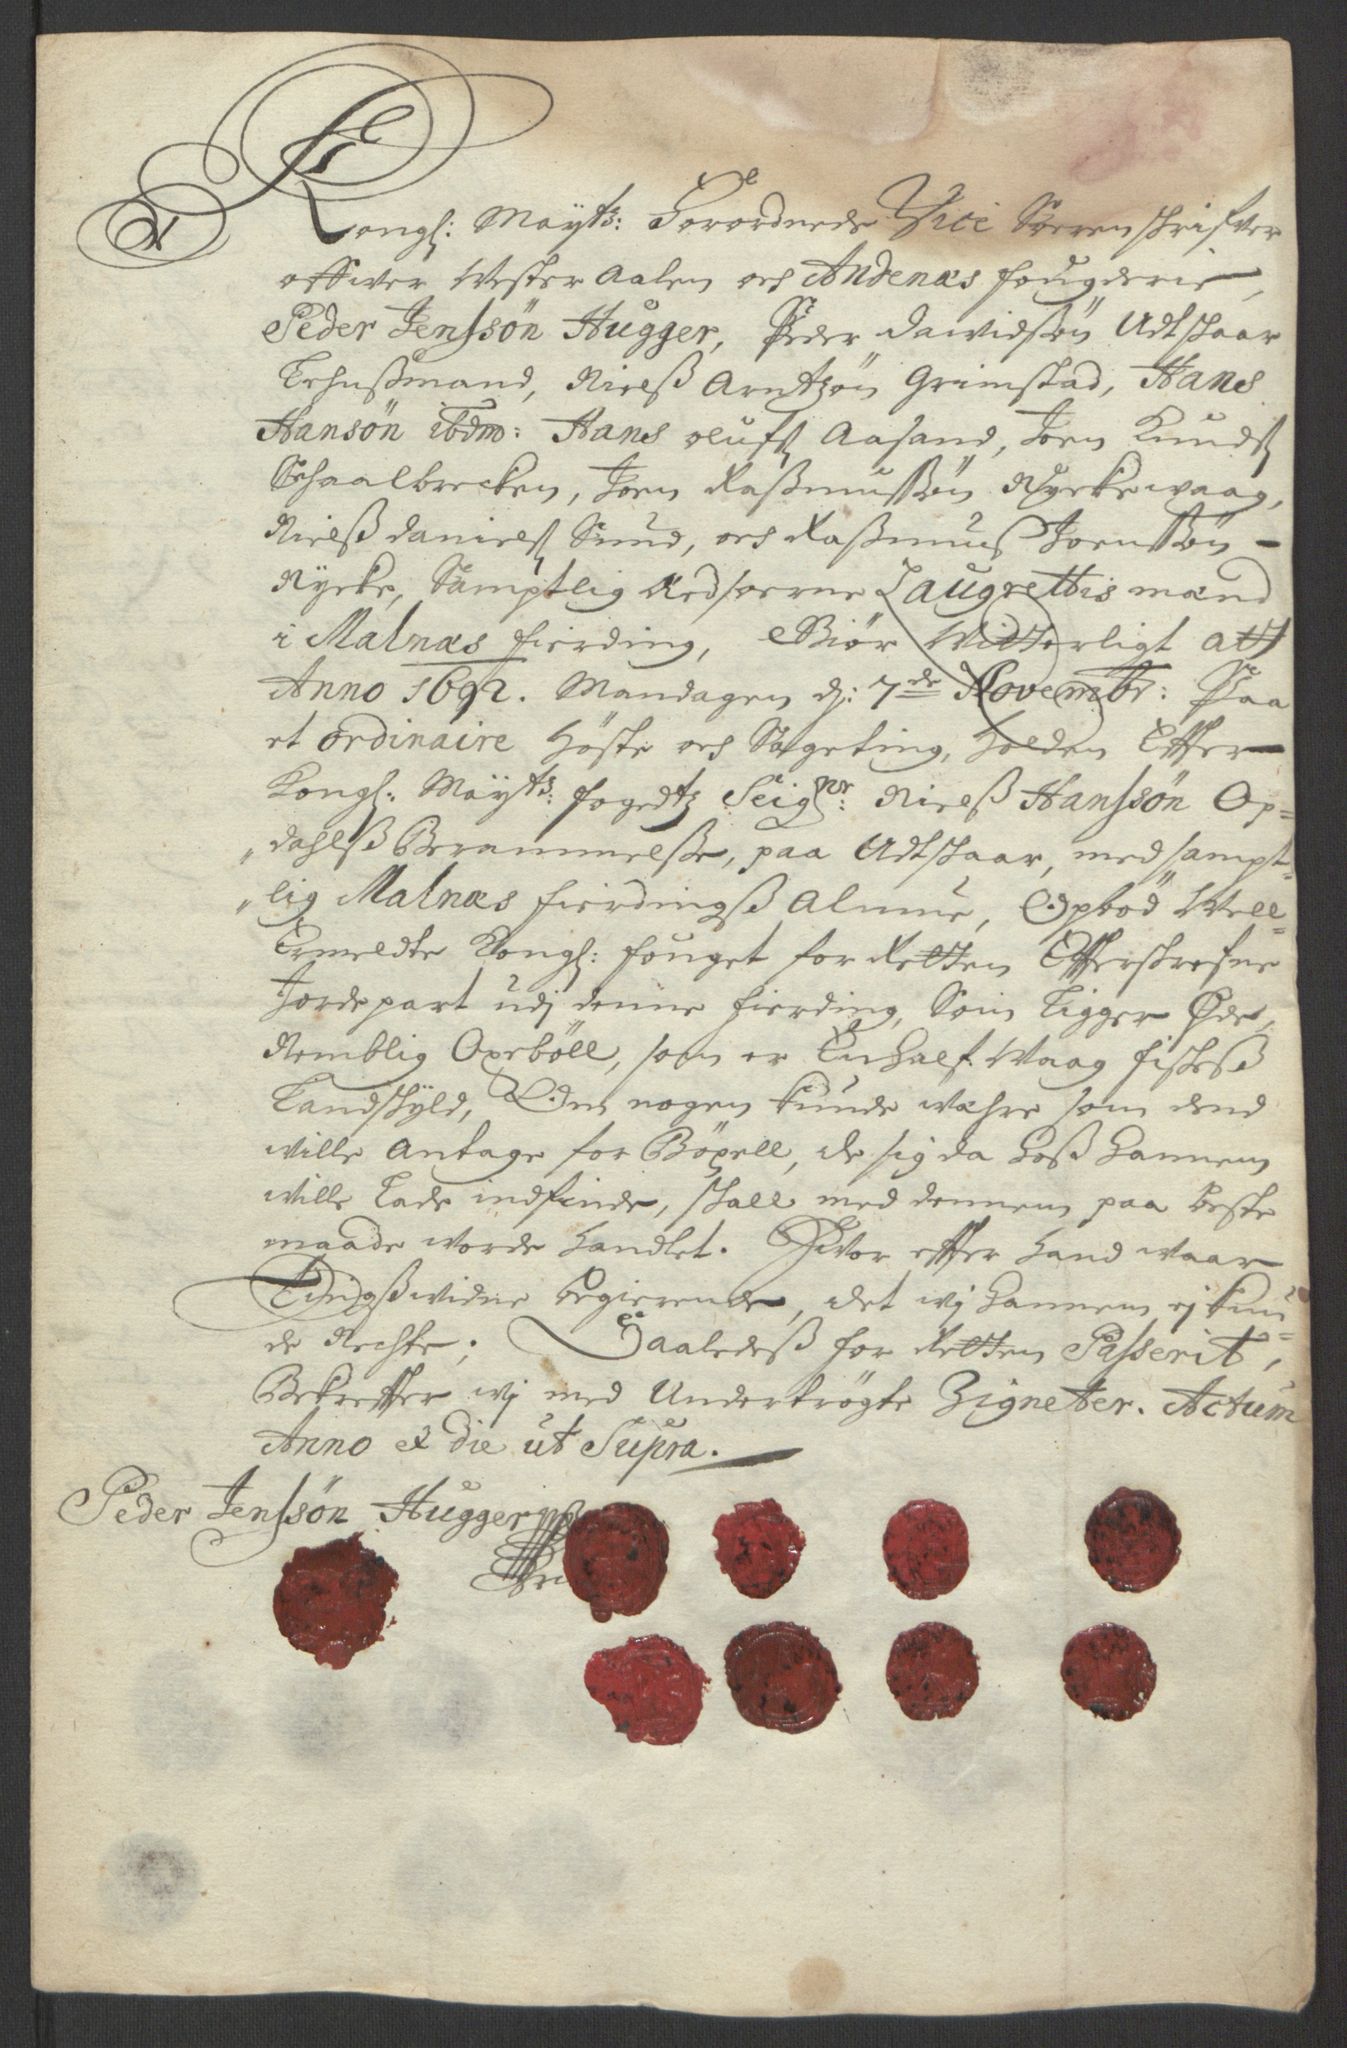 Kongl: Mayts: Forordnede Vice Sorenschrifver
offwer Wester Aalen och Andenæs fougderie,
Peder Jenssön Hugger, Peder Dawidsön Udtskaar
Lehnßmand, Nielß Arntzön Grimstad, Hans
Hansön ibdm: Hans Olufs Aasand, Joen Knuds
Schaalbrecken, Joen Raßmussön Nyckewaag,
Nielß Daniels Sund, och Raßmus Joenssön
Nycke, Samptlig Edsoerne Laugrettis mænd
i Malnæs fierding, Giör Witterligt att
Anno 1692. Mandagen dj: 7de Novembr: Paa
et ordinaire Höste och Sageting, holden Effter
Kongl: Mayts: fogedtz Seignr: Nielß Hanssön Op=
dahlß Berammelße, paa Udtskaar, med sampt=
lig Malnæs fierdingß Almue, Opböd Well=
Ermeldte Kongl: fouget for Retten Effterskrefne
Jordepart udj denne fierding, Som Ligger Øde,
Nemblig Oxeböll, som er En half Waag fiskeß
Landskyld, Om nogen kunde wæhre som dend
wille Antage for Böxell, de sig da hoß hannem
wille Lade indfinde, skall med dennem paa beste
maade worde handlet. Hvor effter hand waar
Tingßwidne begierende, det wj hannem ej kun=
de Nechte; Saaledeß for Retten Passerit,
Bekreffter wj med Undertrögte Zigneter. Actum
Anno et die ut Supra.
Peder Jenssön Hugger